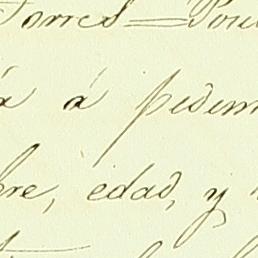 Torres = Pon
a á pedim
bre, edad, y